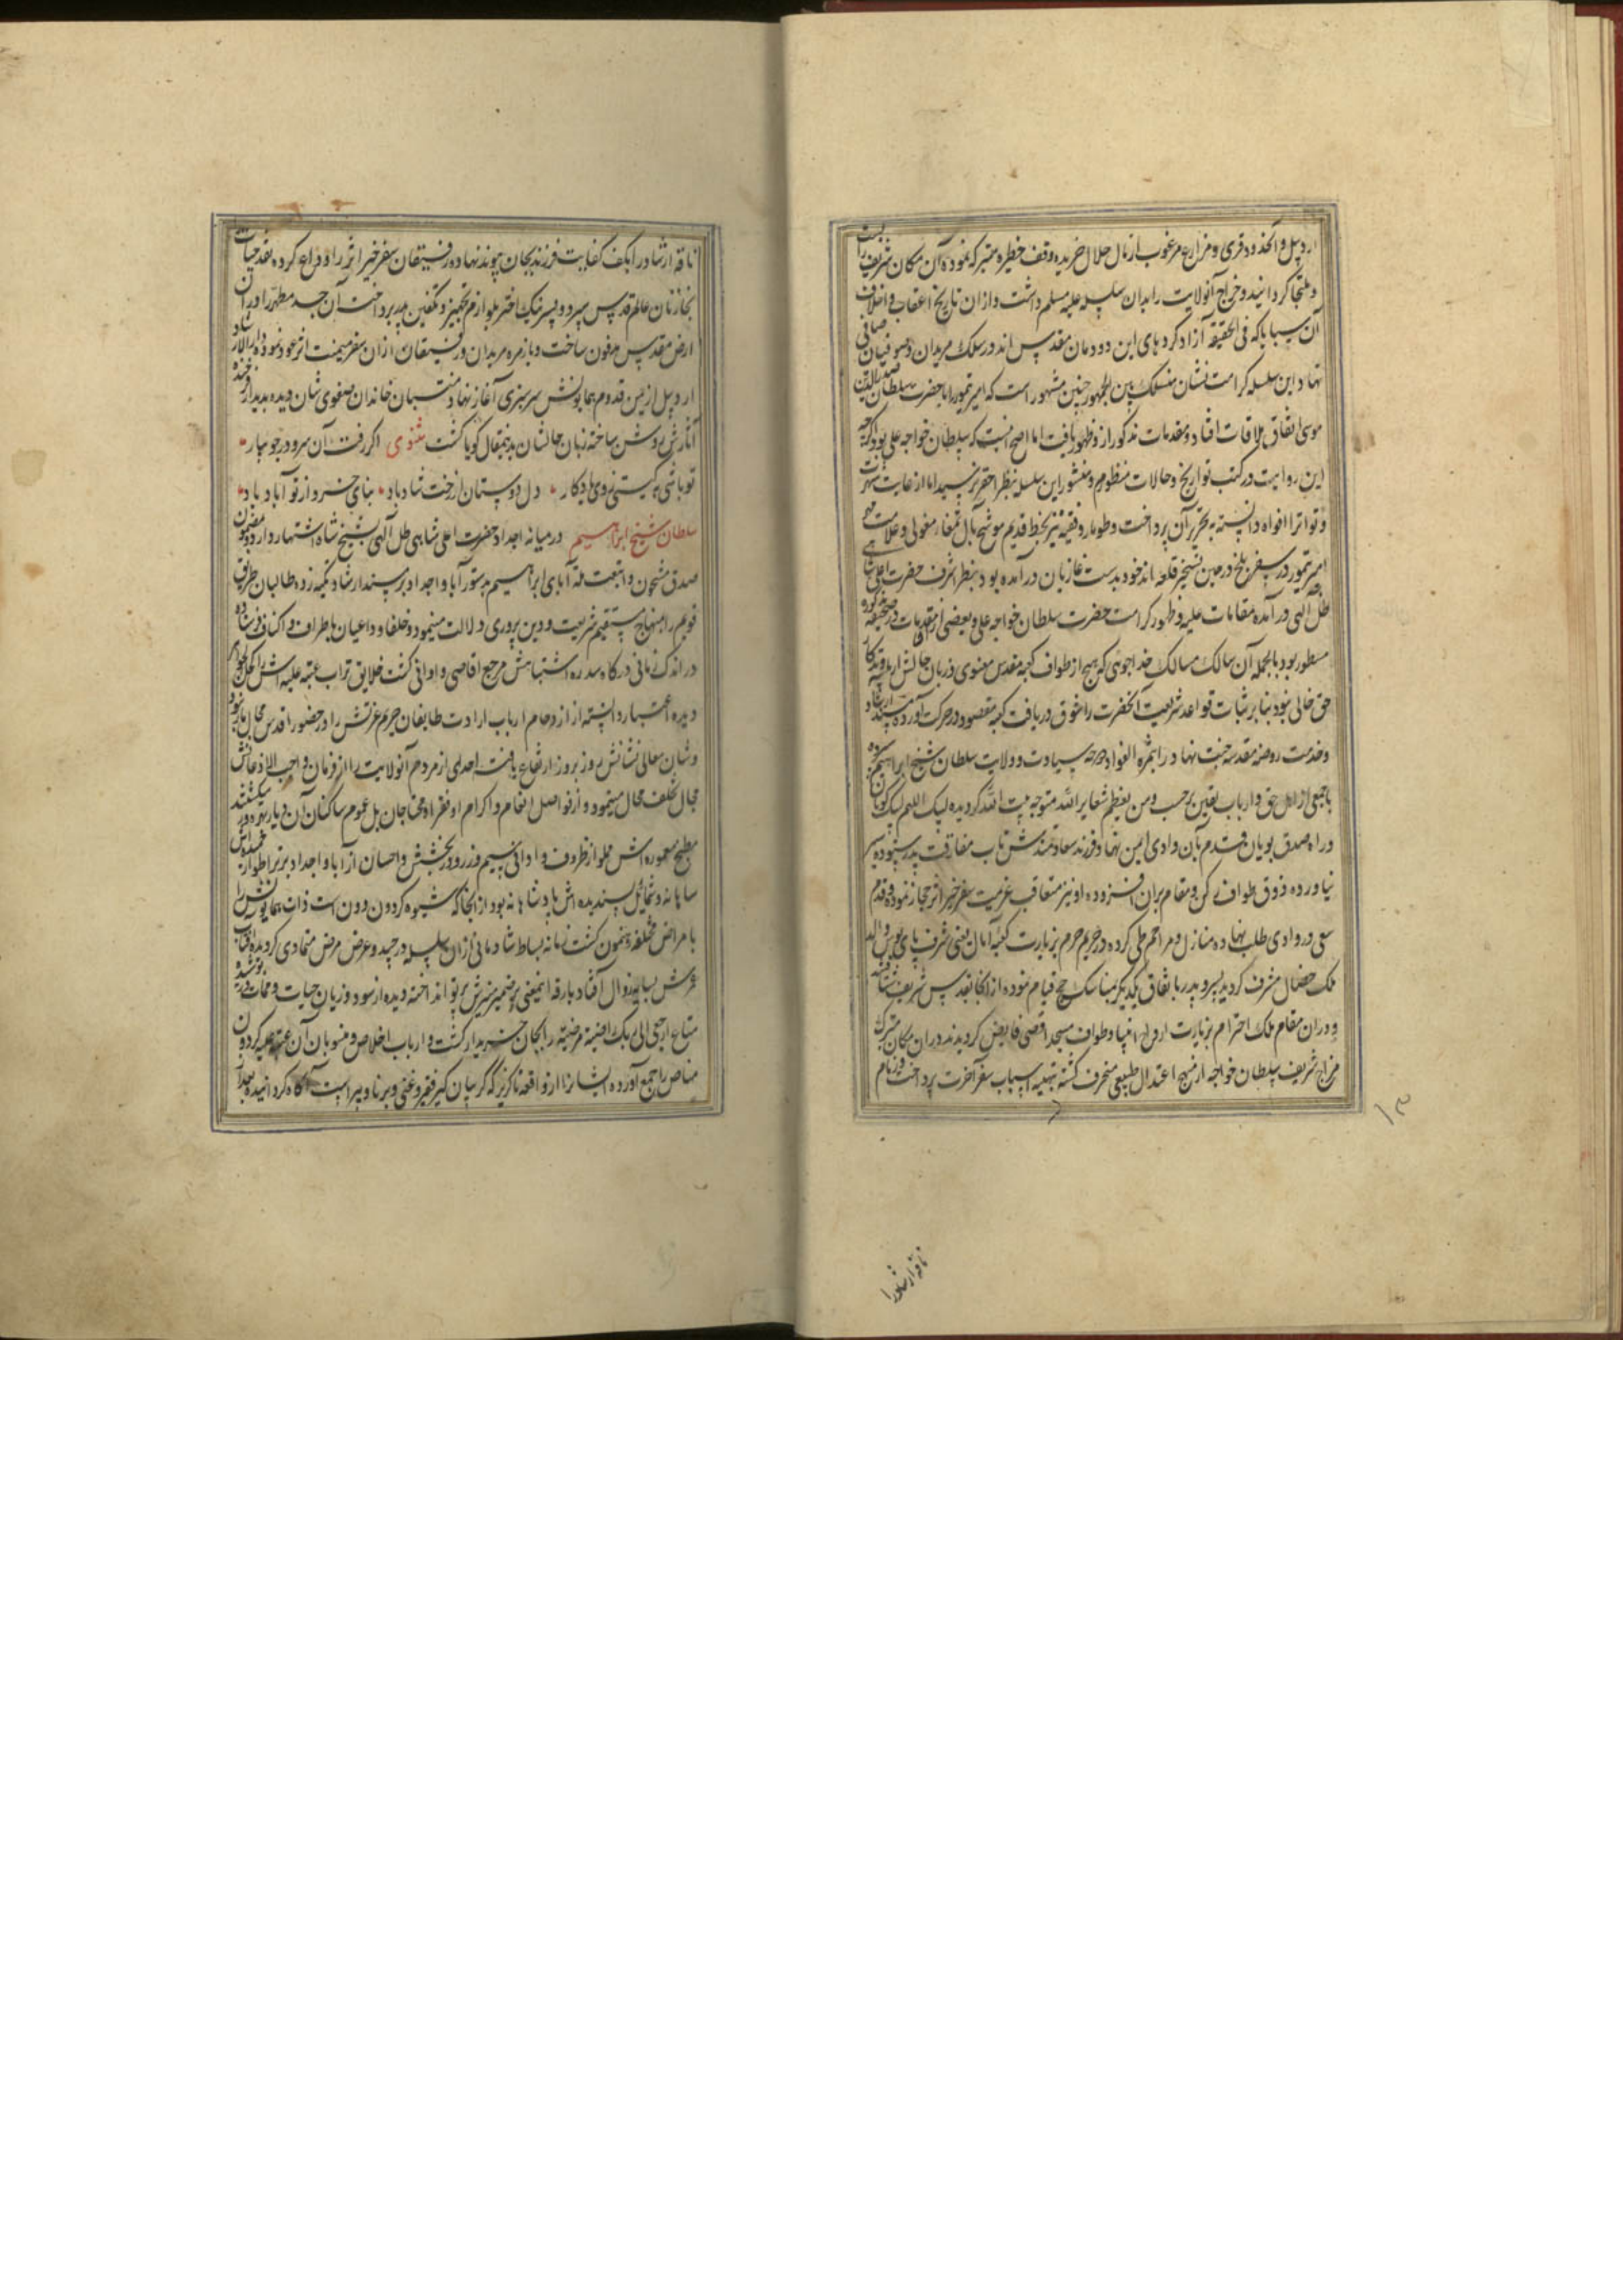 اردبیل و آنحدود و قری و مزارع مرغوب از مال حلال خریده وقف حظیره متبرکه نموده آن مکان شریف را بست
و ملتجا گردانید و خراج آنولایت را بدان سلسله علیه مسلم داشت و از آن تاریخ اعقاب و اخلاف
آن سبایا که فی الحقیقه آزاد کردهای این دودمان مقدس اند در سلک مریدان و صوفیان صافی
نهاد این سلسله کرامت نشان منسلک بین الجمهور چنین مشهور است که امیر تیمور را با حضرت سلطان صدرالدین
موسی اتفاق ملاقات افتاد و مقدمات مذکور ازو ظهور یافت اما اصح آنست که سلطان خواجه علی بود اگرچه
این روایت در کتب تواریخ و حالات منظوم و منثور این سلسله بنظر احقر نرسید اما از غایت شهرت
و تواتر افواه دانسته به تحریر آن پرداخت و طومار وقفیه نیز بخط قدیم موشح بآل تمغاء مغولی و علامت مهر
امیر تیمور در سفر بلخ در حین تسخیر قلعه اندخود بدست غازیان در آمده بود بنظر اشرف حضرت اعلی شاهی
ظل الهی در آمده مقامات علیه و ظهور کرامت حضرت سلطان خواجه علی و بعضی از مقدمات در صحیفه مذکوره
مسطور بود بالجمله آن سالک مسالک خداجوئی که هیچ از طواف کعبه مقدس معنوی و زبان حالش از
حق خالی نبود بنابر ثبات قواعد شریعت آنحضرت را شوق دریافت کعبه مقصود در حرکت آورده مسند ارشاد
و خدمت روضه مقدسه جنت نهاد را بثمرة الفواد سیادت و ولایت سلطان شیخ ابراهیم
با جمعی از اهل حق و ارباب یقین بر حسب و من یعظم شعایر الله متوجه بیت الله گردیده لبیک اللهم لبیک گویان
و راه صدق پویان قدم بآن وادی ایمن نهاد فرزند سعادتمندش تاب مفارقت پدر ستوده سیر
نیاورده ذوق طواف رکن و مقام بر آن افزوده او نیز متعاقب عزیمت سفر خیر اثر حجاز نموده قدم
سعی در وادی طلب نهاده منازل و مراحم طی کرده در حریم حرم بزیارت کعبه آمال یعنی شرف پای بوس والد
ملک خصال مشرف گردید پسر و پدر باتفاق یکدیگر بمناسک حج قیام نموده از آنجا بقدس شریف شتافتند
و در آن مقام ملک احترام بزیارت ارواح انبیا و طواف مسجد اقصی فایض گردیدند در آن مکان متبرک
مزاج شریف سلطان خواجه از منهج اعتدال طبیعی منحرف گشته بتهیه اسباب سفر آخرت پرداخت و زمام
ناقه ارشاد را
ناقه ارشاد را بکف کفایت فرزند بجان پیوند نهاده رفیقان سفر خیر اثر را وداع کرده نقد حیات
بخازنان عالم قدس سپرد و پسر نیک اختر بلوازم تجهیز و تکفین پدر پرداخت آن جسد مطهر را در آن
ارض مقدس مدفون ساخت و با زمره مریدان و رفیقان از آن سفر میمنت اثر عود نمود دارالارشاد
اردبیل از یمن قدوم همایونش سرسبزی آغاز نهاد منتسبان خاندان صفوی شان دیده بدیدار فرخنده
آثارش روشن ساخته زبان حالشان بدینمقال گویا گشت مثنوی اگر رفت آن سرو در جویبار
تو باشی بگیتی ز وی یادگار دل دوستان از رخت شاد باد بنای خسرو از تو آباد باد
سلطان شیخ ابراهیم در میانه اجداد حضرت اعلی شاهی ظل الهی بشیخ شاه اشتهار دارد و بمضمون
صدق مشحون و اتبعت ملة آبای ابراهیم بدستور آبا و اجداد بر مسند ارشاد تکیه زده طالبان طریق
قویم را بمنهاج مستقیم شریعت و دین پروری دلالت مینمود و خلفا و داعیان باطراف و اکناف فرستاده
در اندک زمانی درگاه سدره اشتباهش مرجع اقاصی و ادانی گشت خلایق تراب عتبه علیه اش را کحل الجواهر
دیده اعتبار دانسته از ازدحام ارباب ارادت طایفان حریم عزتش را در حضور اقدس مجال بار نبود
و شان معالی نشانش روز بروز ارتفاع یافت احدی از مردم آنولایت را از فرمان واجب الاذعانش
مجال تخلف محال مینمود و از نواصل انعام و اکرام او فقرا و محتاجان بل عموم ساکنان آن دیار بهره ور میگشتند
مطبخ معموره اش مملو از ظروف و اوانی سیم و زر و در بخشش و احسان از آبا و اجداد برتر اطوار حمیده اش
شاهانه و شمایل پسندیده اش پادشاهانه بود از آنجا که شیوه گردون دون است ذات همایونش را
بامراض مختلفه رهنمون گشت زمانه بساط شادمانی از آن سلسله درچید و عرض مرض متمادی گردیده آفتاب
عمرش بسایه زوال افتاد بارقه اینمعنی بر ضمیر منیرش پرتو انداخته دیده از سود و زیان حیات و ممات پوشید و
متاع ارجعی الی ربک راضیة مرضیة را بجان خریدار گشت و ارباب اخلاص و منسوبان آن عتبه علیه گردون
مناص را جمع آورده ایشان را از واقعه ناگزیر که گریبان گیر فقیر و غنی و برنا و پیر است آگاه گردانیده بعد از